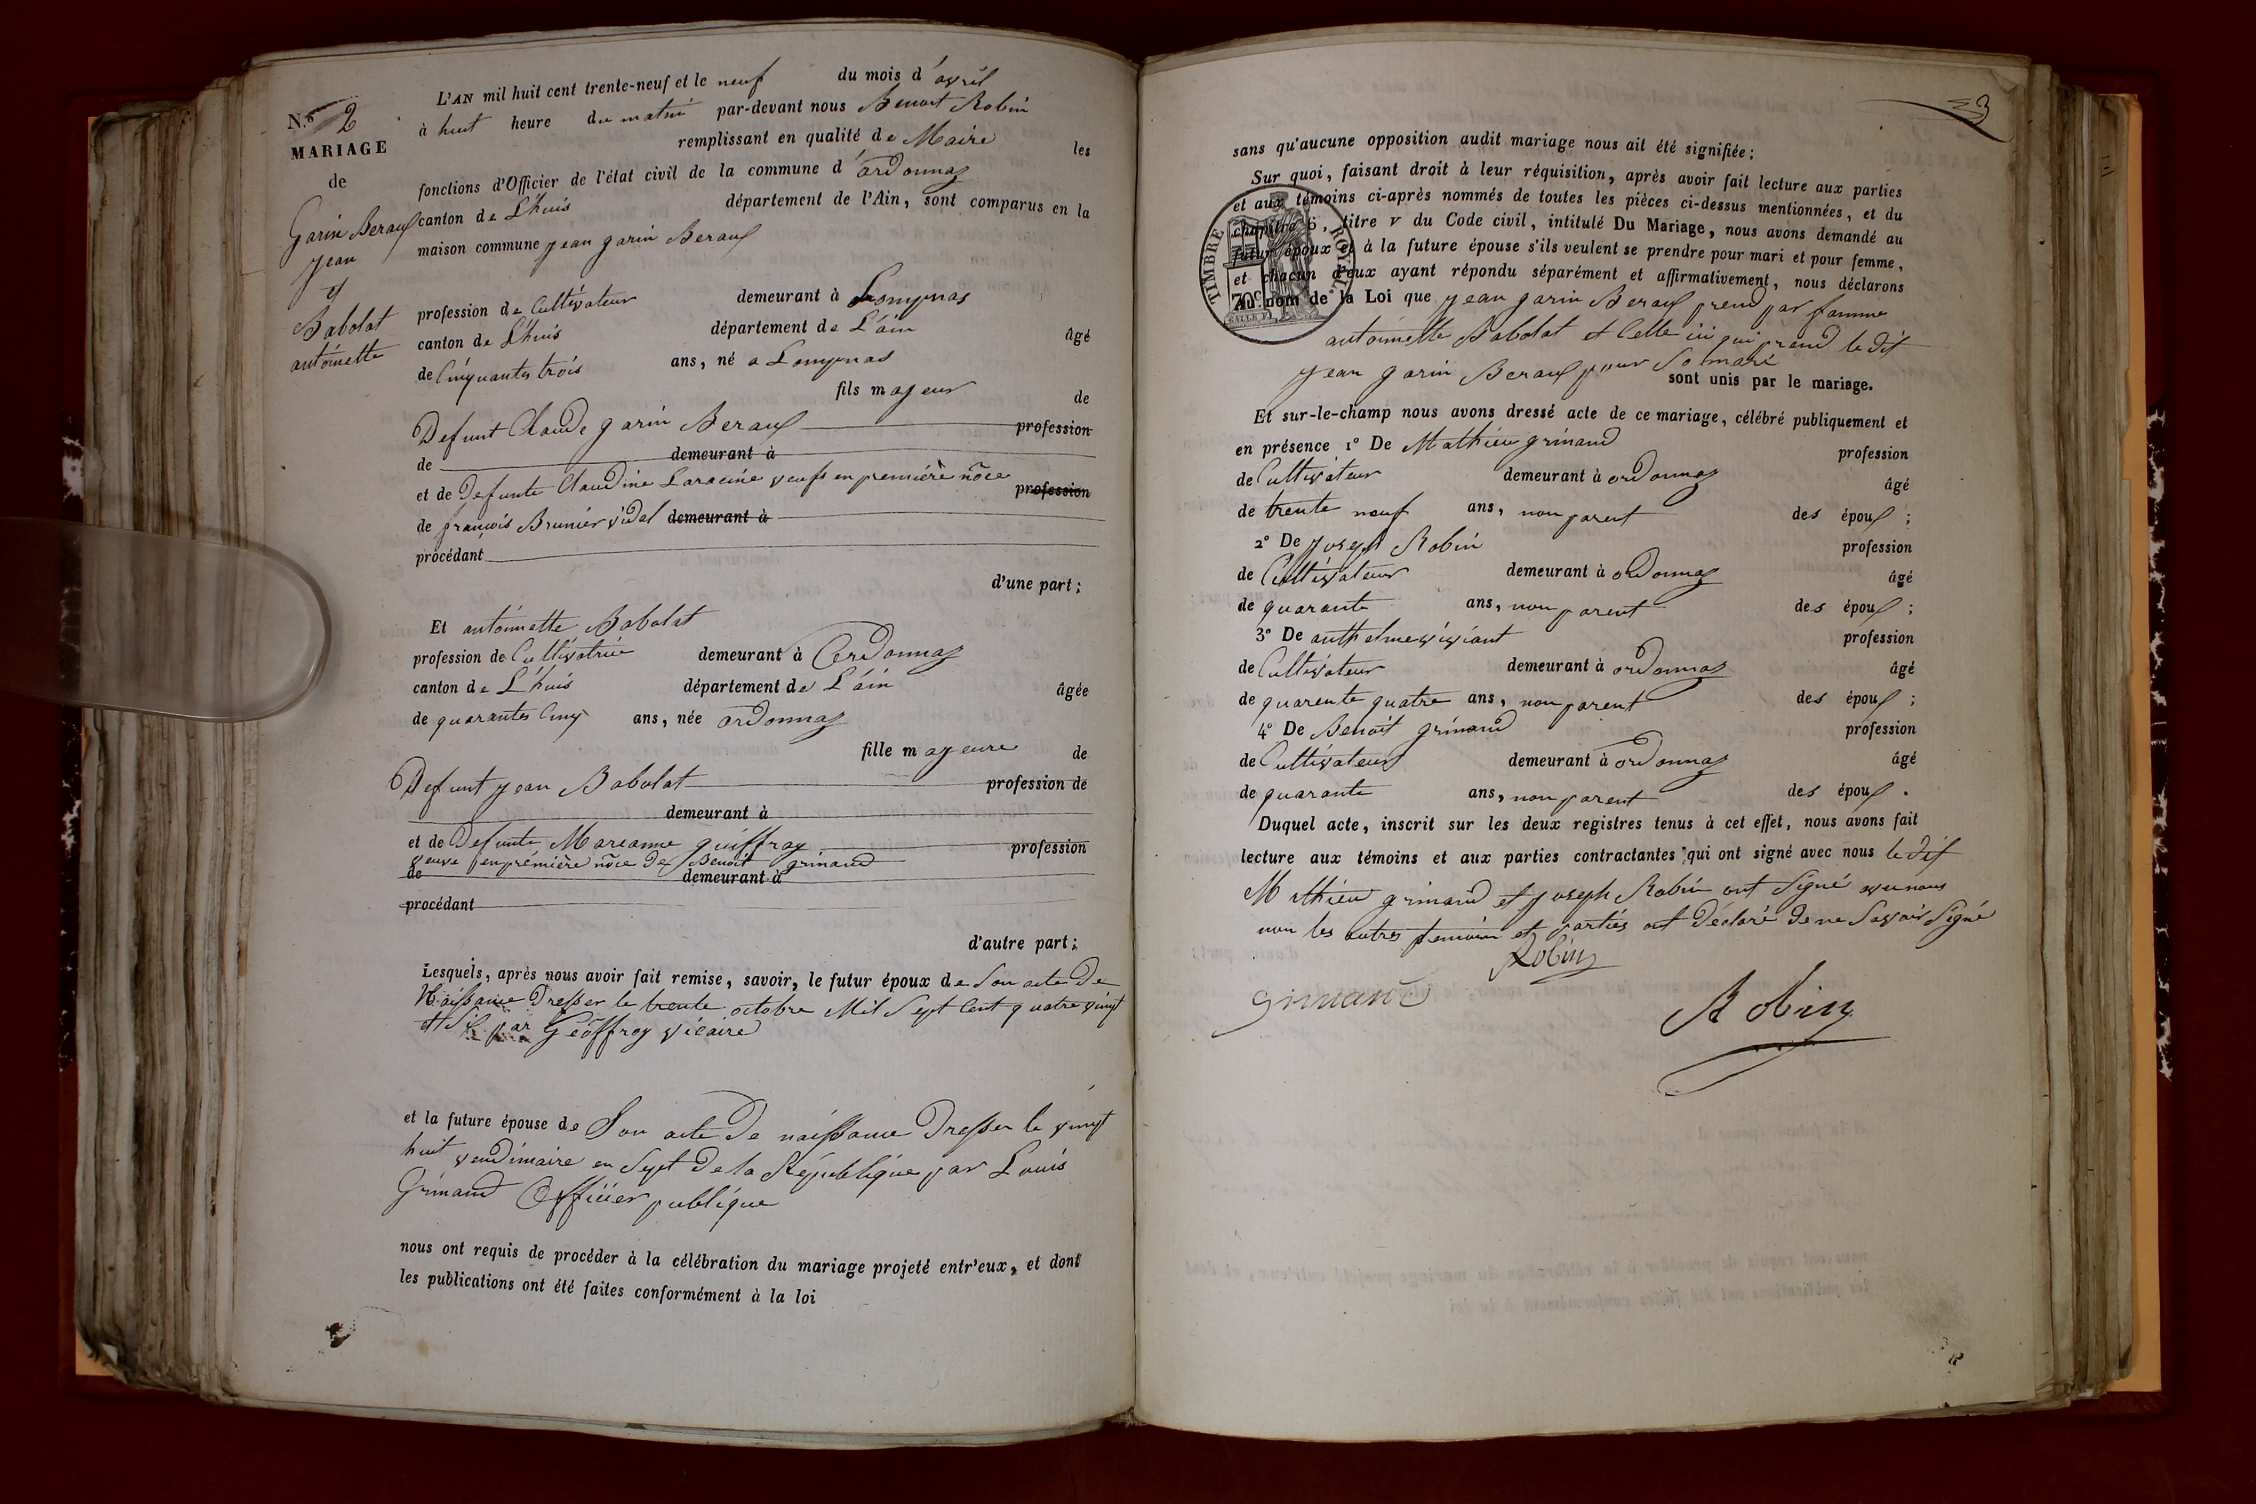 N.º 2
MARIAGE
de
Garin Beraux
jean
et
Babolat
antoinette
L'AN mil huit cent trente-neuf et le neuf du mois d'avril
à huit heure du matin par-devant nous Benoit Robin
remplissant en qualité de Maire les
fonctions d'Officier de l'état civil de la commune d'ordonnaz
canton de L'huis département de l'Ain, sont comparus en la
maison commune jean garin Beraux
profession de Cultivateur demeurant à Lompnas
canton de L'huis département de L'ain âgé
de Cinquantes trois ans, né a Lompnas
fils majeur de
Defunt Claude garin Beraux profession
de demeurant à
et de Defunte Claudine Laracine veufs en première nôce profession
de françois Brunier vidal demeurant à
procédant
d'une part;
Et antoinette Babolat
profession de Cultivatrice demeurant à Ordonnaz
canton de L'huis département de L'ain âgée
de quarantes Cinq ans, née ordonnaz
fille mageure de
Defunt jean Babolat profession de
demeurant à
et de Defunte Marianne guiffray profession
veuve en première nôce de Benoit grinand
de demeurant à
procédant
d'autre part;
Lesquels, après nous avoir fait remise, savoir, le futur époux de Son acte De
Naissance Dresser le trente octobre Mil Sept Cent quatre vingt
et Six par Géoffray vicaire
et la future épouse de Son acte De naissance Dresser le vingt
huit vendimaire en Sept De la République par Louis
Grinand Officier publique
nous ont requis de procéder à la célébration du mariage projeté entr'eux, et dont
les publications ont été faites conformément à la loi
3
sans qu'aucune opposition audit mariage nous ait été signifiée;
Sur quoi, faisant droit à leur réquisition, après avoir fait lecture aux parties
et aux témoins ci-après nommés de toutes les pièces ci-dessus mentionnées, et du
chapitre 6, titre v du Code civil, intitulé Du Mariage, nous avons demandé au
futur époux et à la future épouse s'ils veulent se prendre pour mari et pour femme,
et chacun d'eux ayant répondu séparément et affirmativement, nous déclarons
au nom de la Loi que jean garin Beraux prend par famme
antoinette Babolat et Celle ici qui prend le dit
jean garin Beraux pour So mari
sont unis par le mariage.
TIMBRE ROYAL
70 c
Et sur-le-champ nous avons dressé acte de ce mariage, célébré publiquement et
en présence 1º De Mathieu grinand profession
de Cultivateur demeurant à ordonnaz âgé
de trente neuf ans, non parent des époux ;
2º De joseph Robin profession
de Cultivateur demeurant à ordonnaz âgé
de quarante ans, non parent des époux ;
3º De anthelme viviant profession
de Cultivateur demeurant à ordonnaz âgé
de quarente quatre ans, non parent des époux ;
4º De Benoit grinand profession
de Cultivateur demeurant à ordonnaz âgé
de quarante ans, non parent des époux .
Duquel acte, inscrit sur les deux registres tenus à cet effet, nous avons fait
lecture aux témoins et aux parties contractantes qui ont signé avec nous le dit
Mathieu grinand et joseph Robin ont Signé avec nous
non les autres temoin et parties ont Déclaré de ne Savoir Signé
Robin
Grinand
Robin